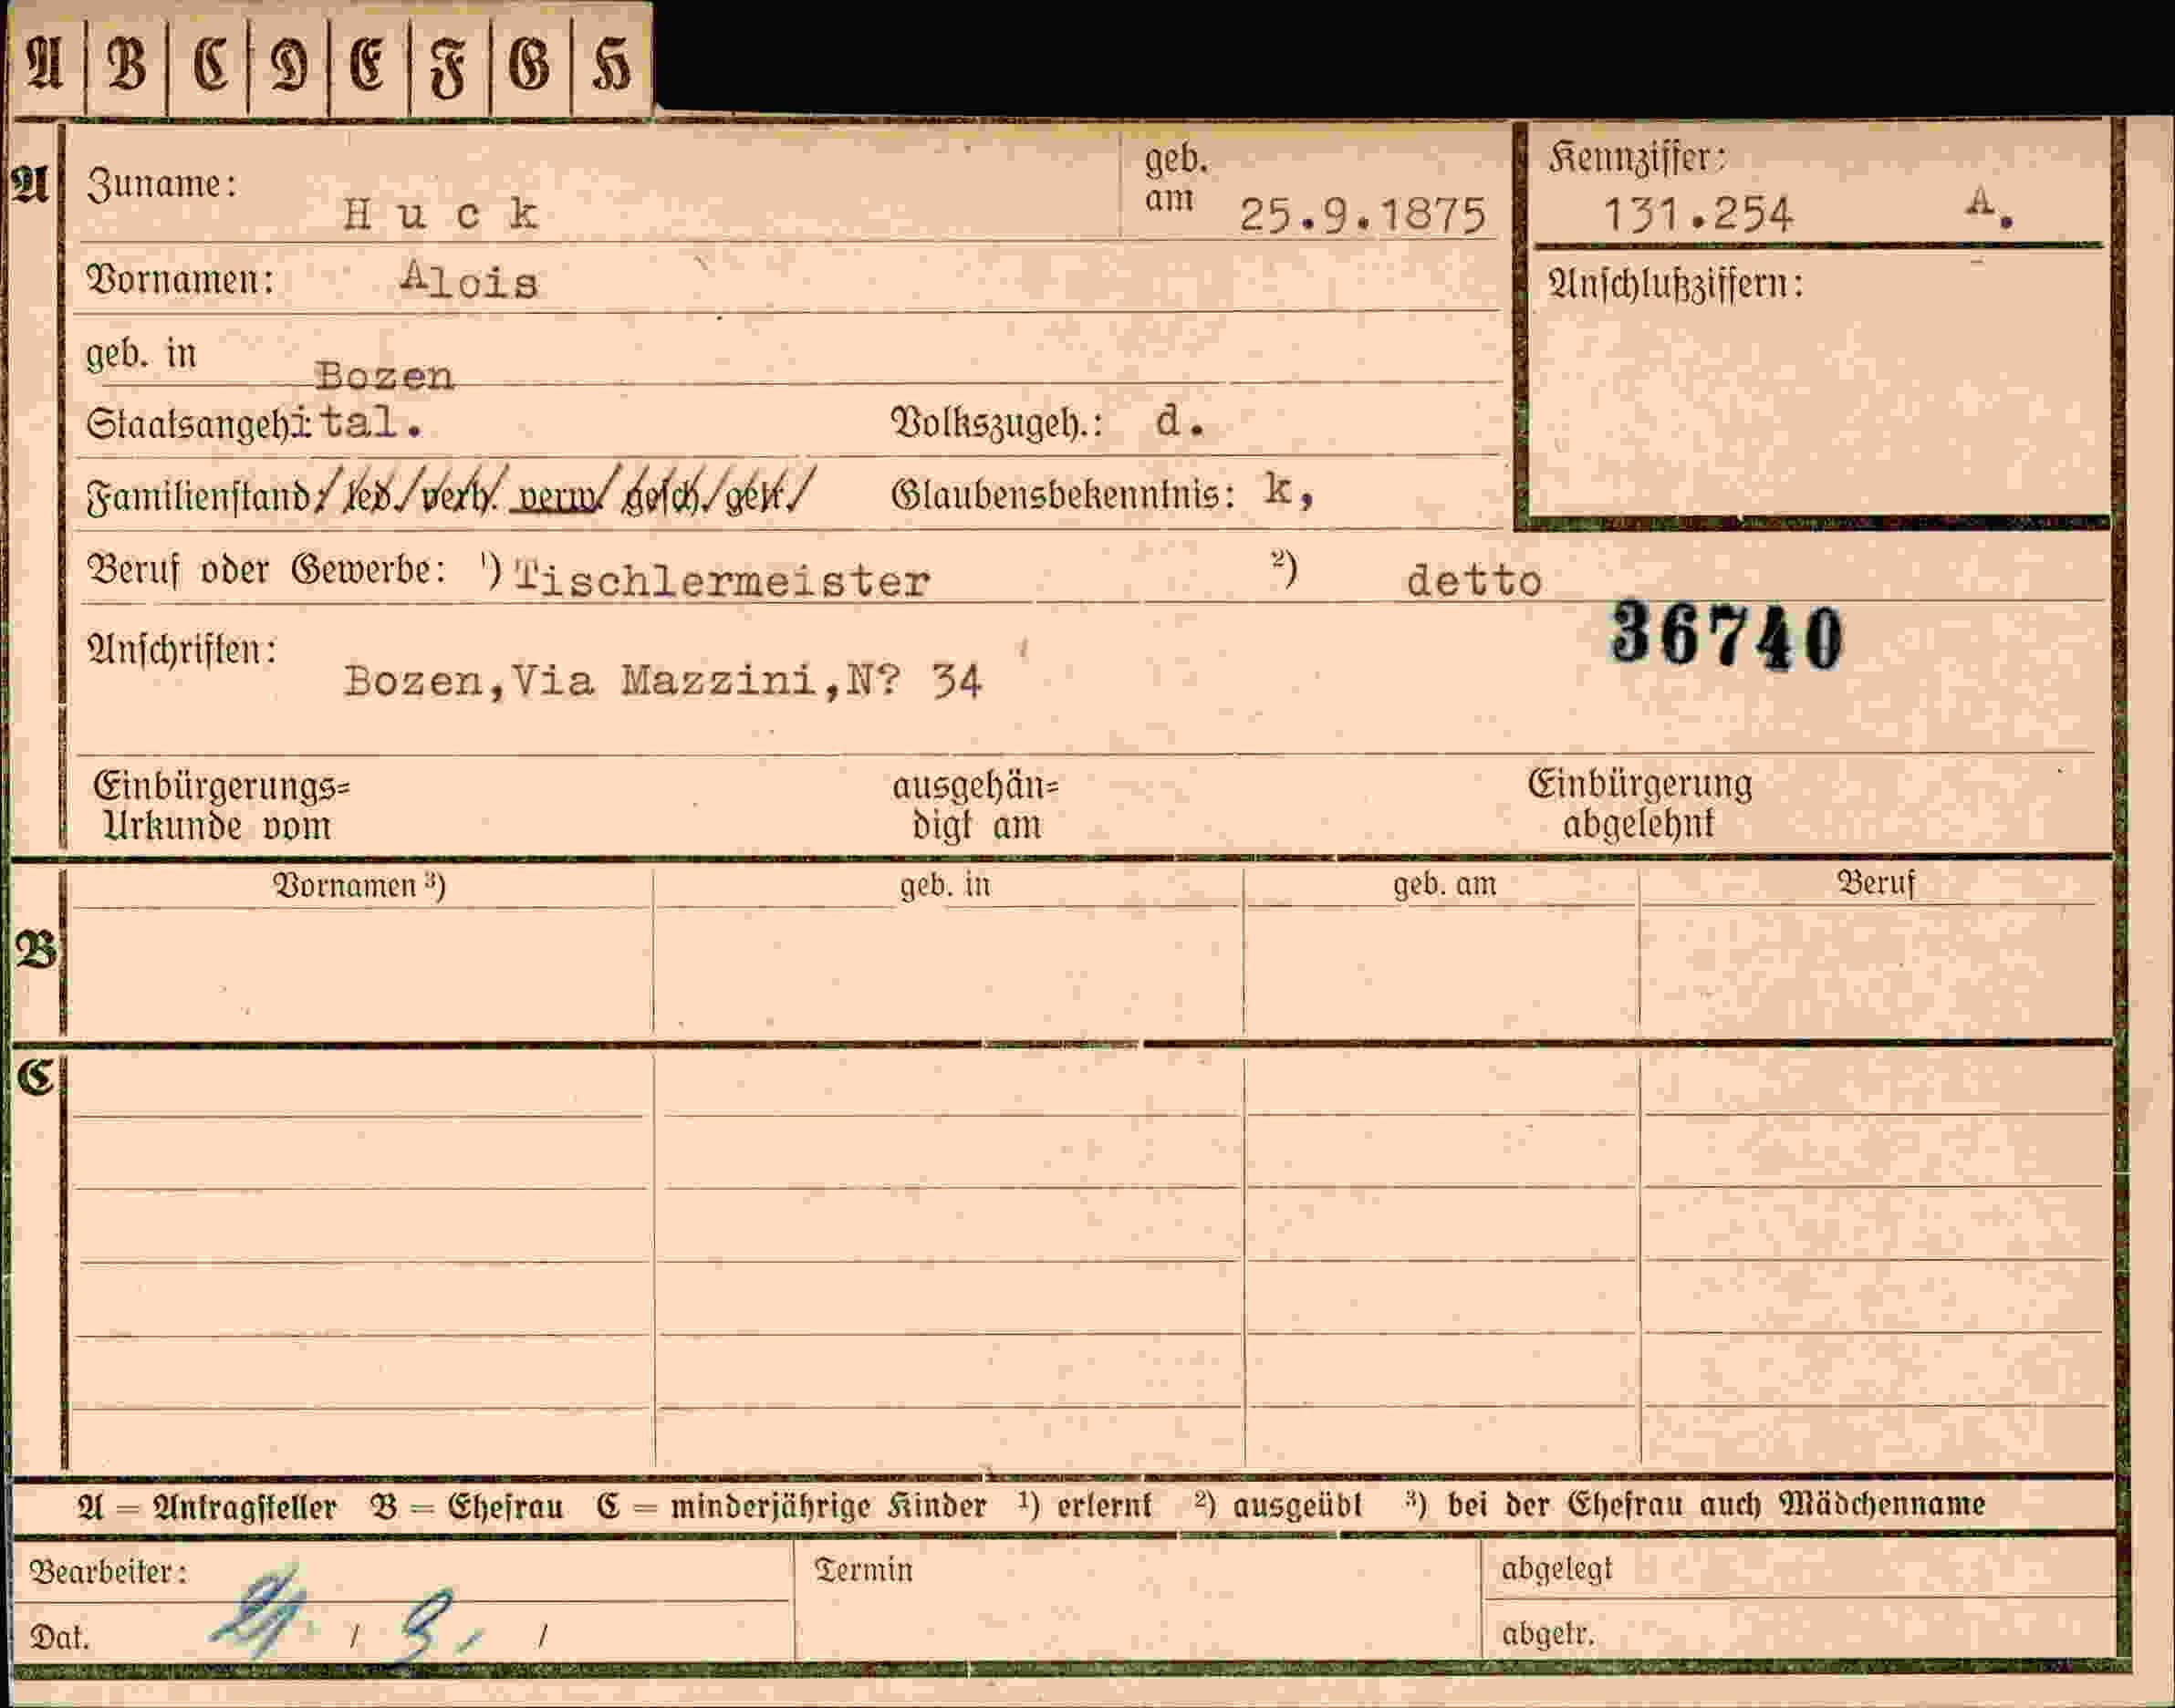 A B C D E F G H
A Zuname: Huck geb. am 25.9.1875 Kennziffer: 131.254 A.
Vornamen: Alois Anschlußziffern:
geb. in Bozen
Staatsangeh ital. Volkszugeh.: d.
Familienstand: led. verh. verw. gesch. getr. Glaubensbekenntnis: k,
Beruf oder Gewerbe: ¹) Tischlermeister ²) detto
36740
Anschriften: Bozen,Via Mazzini,N? 34
Einbürgerungs= ausgehän= Einbürgerung
Urkunde vom digt am abgelehnt
Vornamen ³) geb. in geb. am Beruf
B
C
A = Antragsteller B = Ehefrau C = minderjährige Kinder ¹) erlernt ²) ausgeübt ³) bei der Ehefrau auch Mädchenname
Bearbeiter: Termin abgelegt
Dat. / / abgetr.